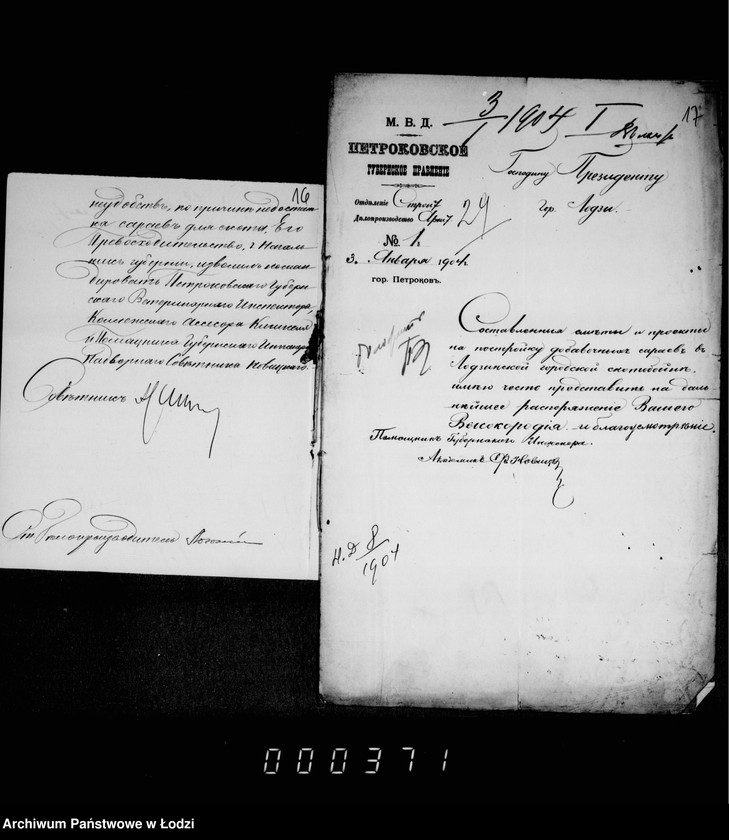 16
неудобствъ, по причинѣ недостат-
ка сараевъ для скота, Его
Превосходительство, г. Началь-
никъ губерніи, изволилъ коман-
дировать Петроковскаго Губерн-
скаго Ветеринарнаго Инспектора,
Коллежскаго Ассесора
и Помощника Губернскаго Инженера,
Надворнаго Совѣтника Новицкаго.
Совѣтникъ
Ст. Дѣлопроизводитель
17
3/I 1904 I
М. В. Д.
ПЕТРОКОВСКОЕ
ГУБЕРНСКОЕ ПРАВЛЕНІЕ
Отдѣленіе Строит
Дѣлопроизводство
29
№ 1.
3. Января 1904 г.
гор. Петроковъ.
Господину Президенту
гор. Лодзи.
Составленныя смѣты и проекты
на постройку добавочныхъ сараевъ въ
Лодзинской городской скотобойнѣ,
имѣю честь представить на даль-
нѣйшее распоряженіе Вашего
Высокородія и благоусмотрѣніе.
Помощникъ Губернскаго Инженера,
Новицкій
Н. Д. 8/1904
000371
Archiwum Państwowe w Łodzi